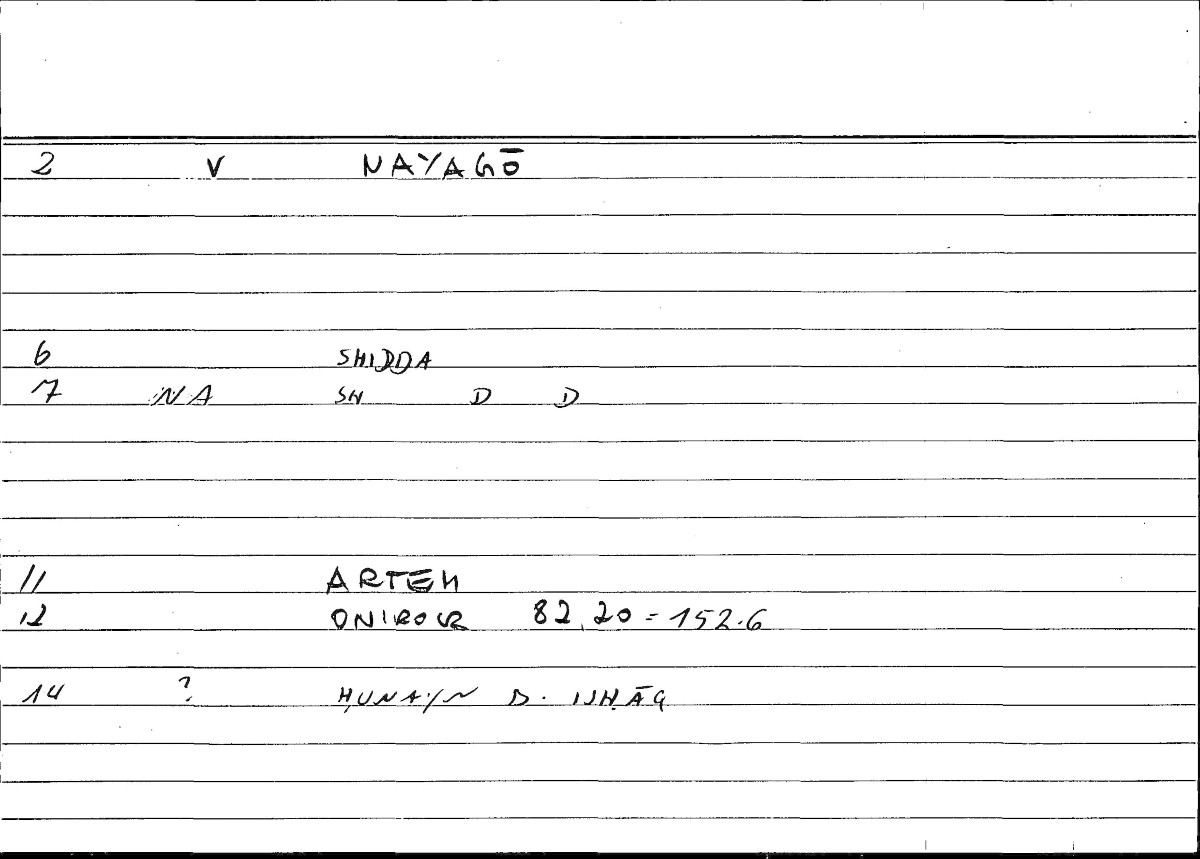 2 V NAYAGŌ
6 SHIDDA
7 NA SH D D
11 ARTEM
12 ONIROCR 82,20 = 152.6
14 ? ḤUNAYN B. ISḤĀQ